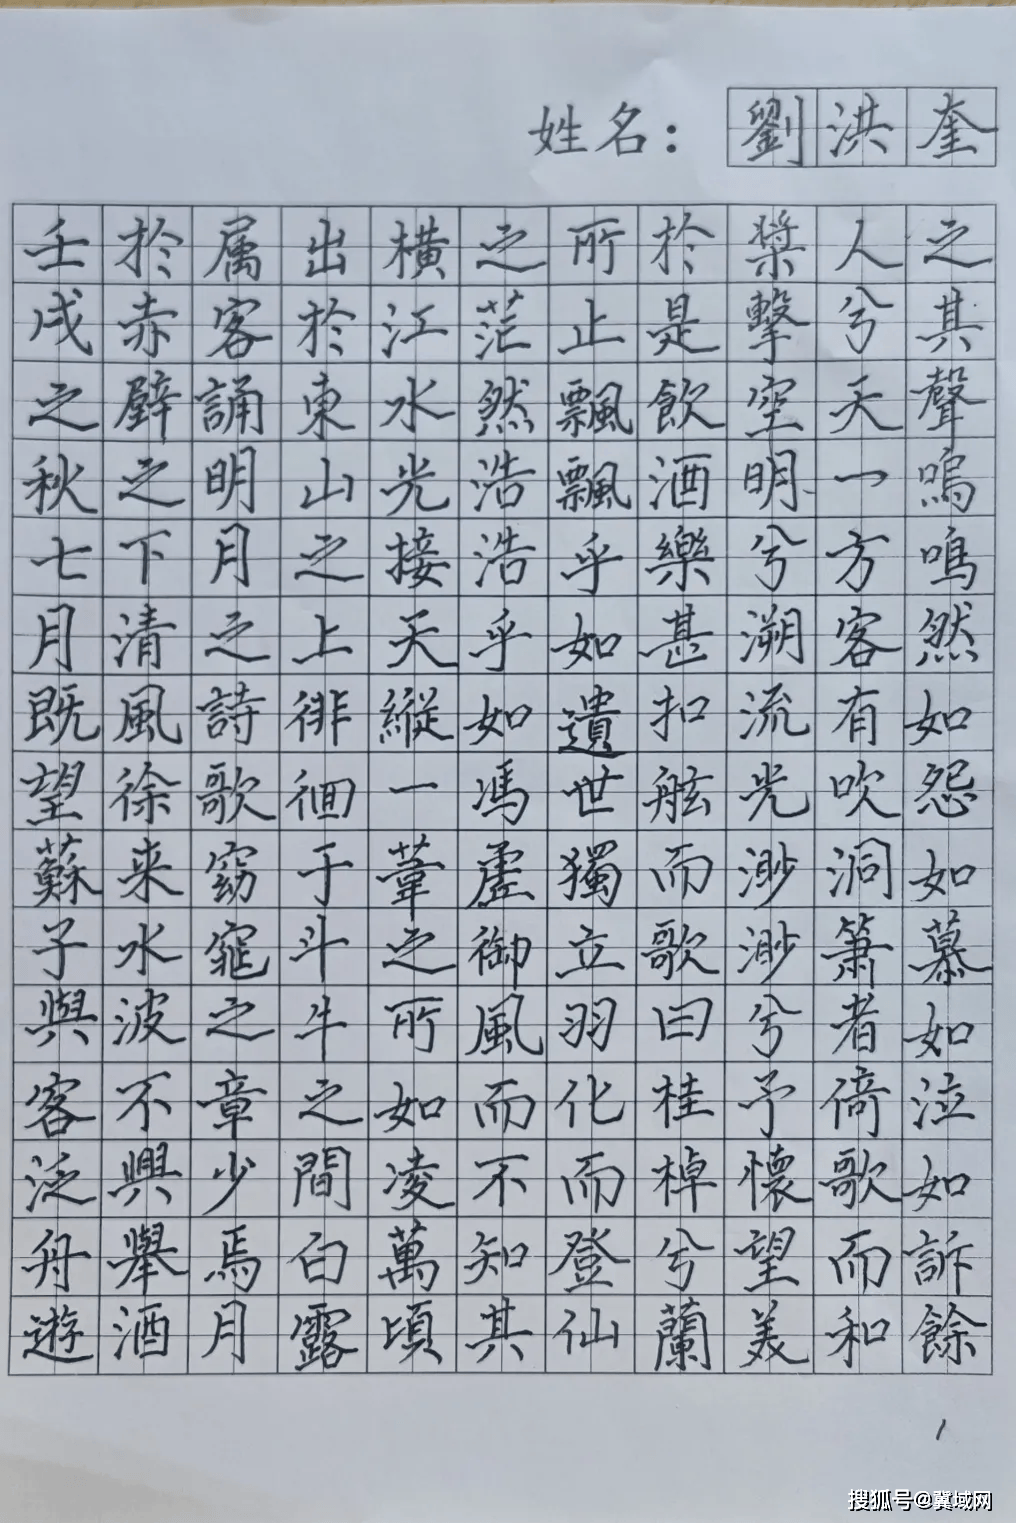 姓名：劉洪奎
壬戌之秋七月既望蘇子與客泛舟遊
於赤壁之下清風徐来水波不興舉酒
属客誦明月之詩歌窈窕之章少焉月
出於東山之上徘徊于斗牛之間白露
横江水光接天縱一葦之所如凌萬頃
之茫然浩浩乎如馮虚御風而不知其
所止飄飄乎如遺世獨立羽化而登仙
於是飲酒樂甚扣舷而歌曰桂棹兮蘭
槳擊空明兮溯流光渺渺兮予懷望美
人兮天一方客有吹洞簫者倚歌而和
之其聲嗚鳴然如怨如慕如泣如訴餘
1
搜狐号@冀域网